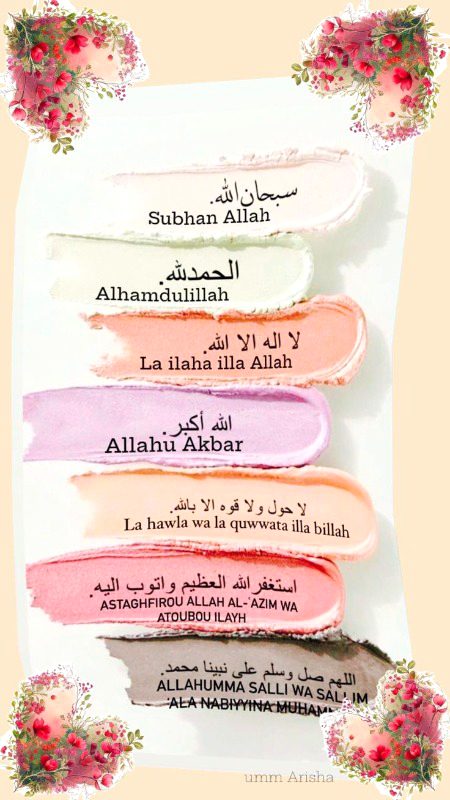 سبحان الله.
Subhan Allah
الحمدلله.
Alhamdulillah
لا اله الا الله.
La ilaha illa Allah
الله أكبر.
Allahu Akbar
لا حول ولا قوه الا بالله.
La hawla wa la quwwata illa billah
استغفر الله العظيم واتوب اليه.
ASTAGHFIROU ALLAH AL-'AZIM WA
ATOUBOU ILAYH
اللهم صل وسلم على نبينا محمد.
ALLAHUMMA SALLI WA SALLIM
'ALA NABIYYINA
umm Arisha